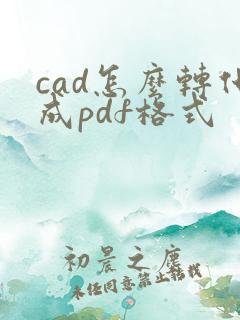 cad怎麼轉化
成pdf格式
初晨之塵
未任同意禁止转载